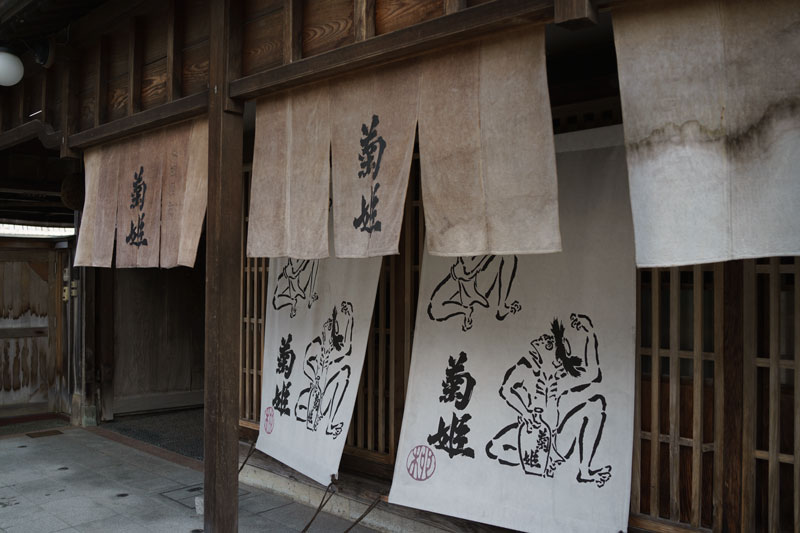 菊姫
菊姫
菊姫
菊姫
菊姫